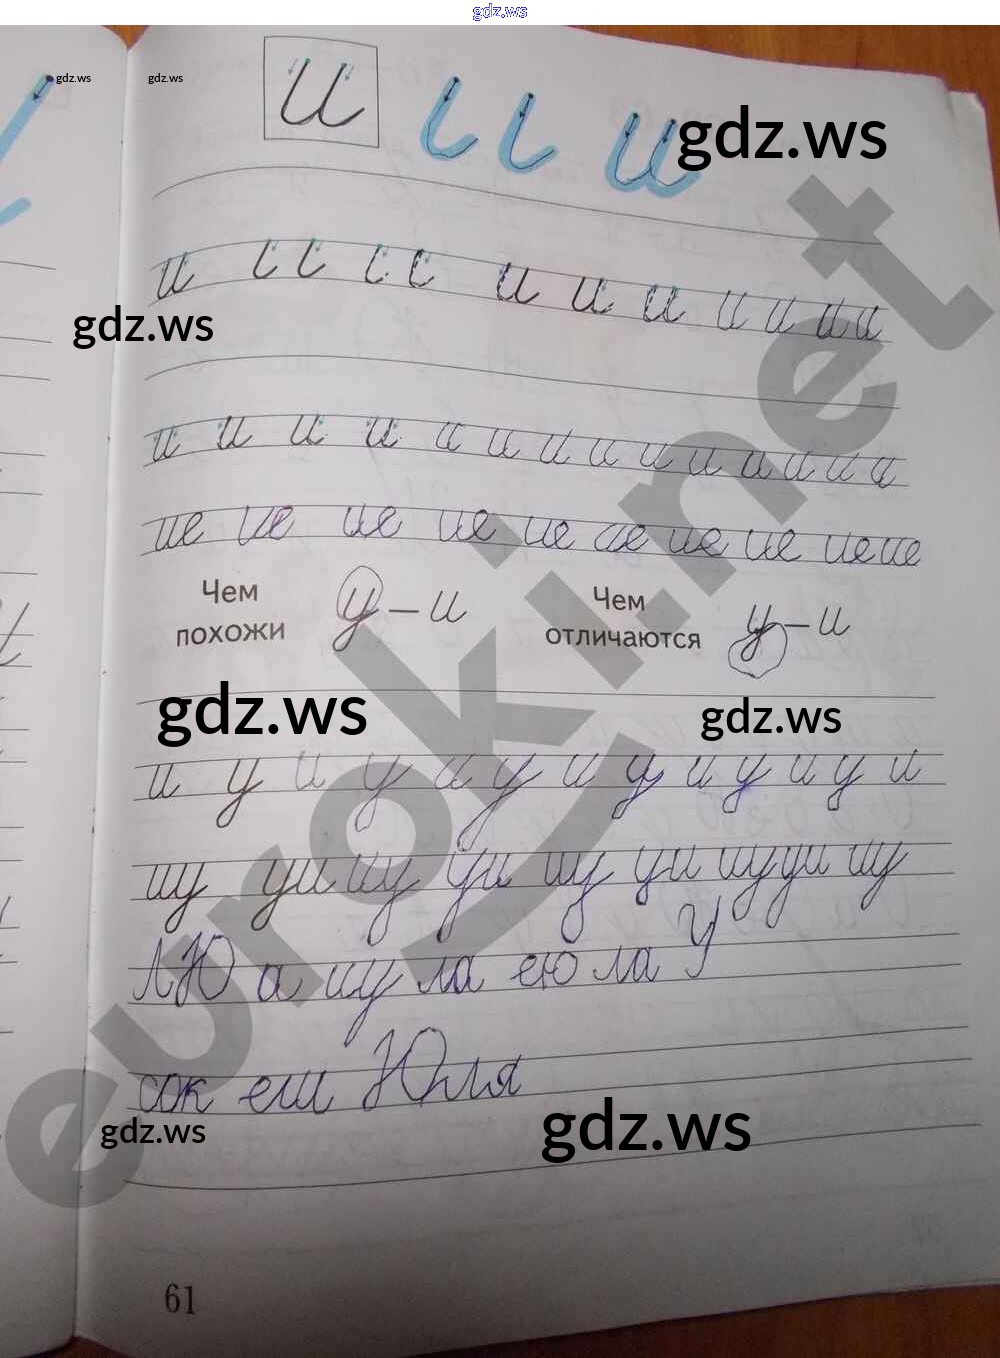 gdz.ws
gdz.ws gdz.ws
и
и
gdz.ws
и и и и и и и и
gdz.ws
и и и и и и и и и и и и и и
ие ие ие ие ие ие ие ие ие ие
Чем похожи у – и
Чем отличаются у – и
gdz.ws gdz.ws
и у и у и у и у и у и у и
иу уи иу уи иу уи иу уи иу
ЛЮ а иу ла ею ла У
сок еш Юля
gdz.ws gdz.ws
61
euroki.net